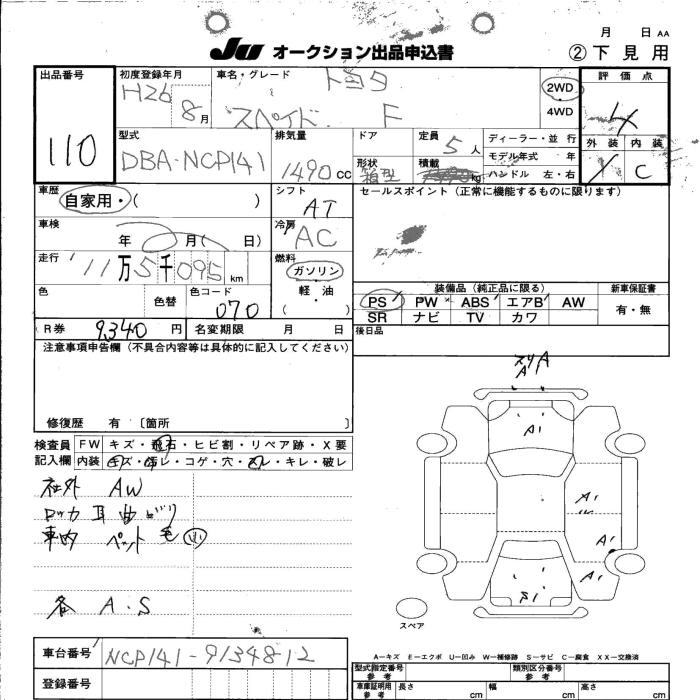 月 日 AA
JU オークション出品申込書 ②下見用
出品番号 初度登録年月 車名・グレード 評価点
110 H26 8月 トヨタ スペイド F 2WD 4WD 4
型式 排気量 ドア 定員 ディーラー・並行 外装 内装
DBA-NCP141 1490 CC 5人 モデル年式 年 C
形状 箱型 積載 kg ハンドル 左・右
車歴 シフト セールスポイント (正常に機能するものに限ります)
自家用・( ) AT
車検 冷房
年 月( 日) AC
走行 燃料
11万5千095km ガソリン 軽・油 ( )
装備品 (純正品に限る) 新車保証書
色 色替 色コード 070
PS PW ABS エアB AW 有・無
SR ナビ TV カワ
R券 9,340円 名変期限 月 日 後日品
注意事項申告欄 (不具合内容等は具体的に記入してください)
修復歴 有 〔箇所 〕
検査員 FW キズ・飛石・ヒビ割・リペア跡・X要
記入欄 内装 キズ・汚レ・コゲ・穴・スレ・キレ・破レ
社外 AW
ロッカ 耳曲がり
車内 ペット毛
各 A.S
スリA
A
A1
A1
A1
A1
S1
スペア
A―キズ E―エクボ U―凹み W―補修跡 S―サビ C―腐食 XX―交換済
車台番号 NCP141-9134812
型式指定番号 参考 類別区分番号 参考
登録番号
車庫証明用 参考 長さ cm 幅 cm 高さ cm